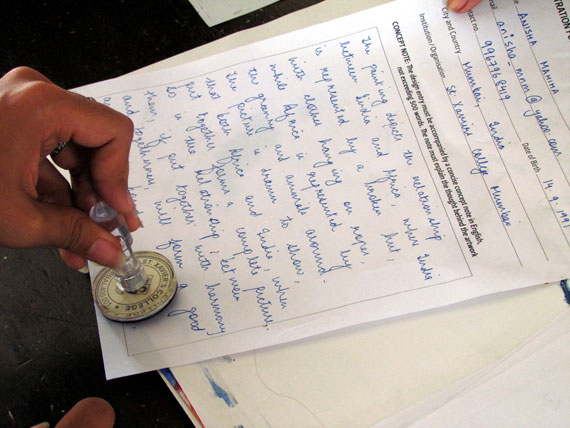 TRATION FO
ANISHA MAHIMA
Date of Birth 14.9.1991
@yahoo.com
act no.
City and Country Mumbai, India
Institution / Organisation St Xaviers College Mumbai
CONCEPT NOTE: The design entry must be accompanied by a concise concept note in English,
not exceeding 500 words. The note must explain the thought behind the artwork
The painting depicts the relationship
between India and Africa where India
is represented by a broken hut,
with clothes hanging on ropes,
while Africa is represented by
the granny and animals around.
The picture is drawn to show,
that both Africa and India, when
put together forms a complete picture.
So is the relationship between
them, if put together with harmony
and togetherness, will form a good
XAVIER'S COLLEGE